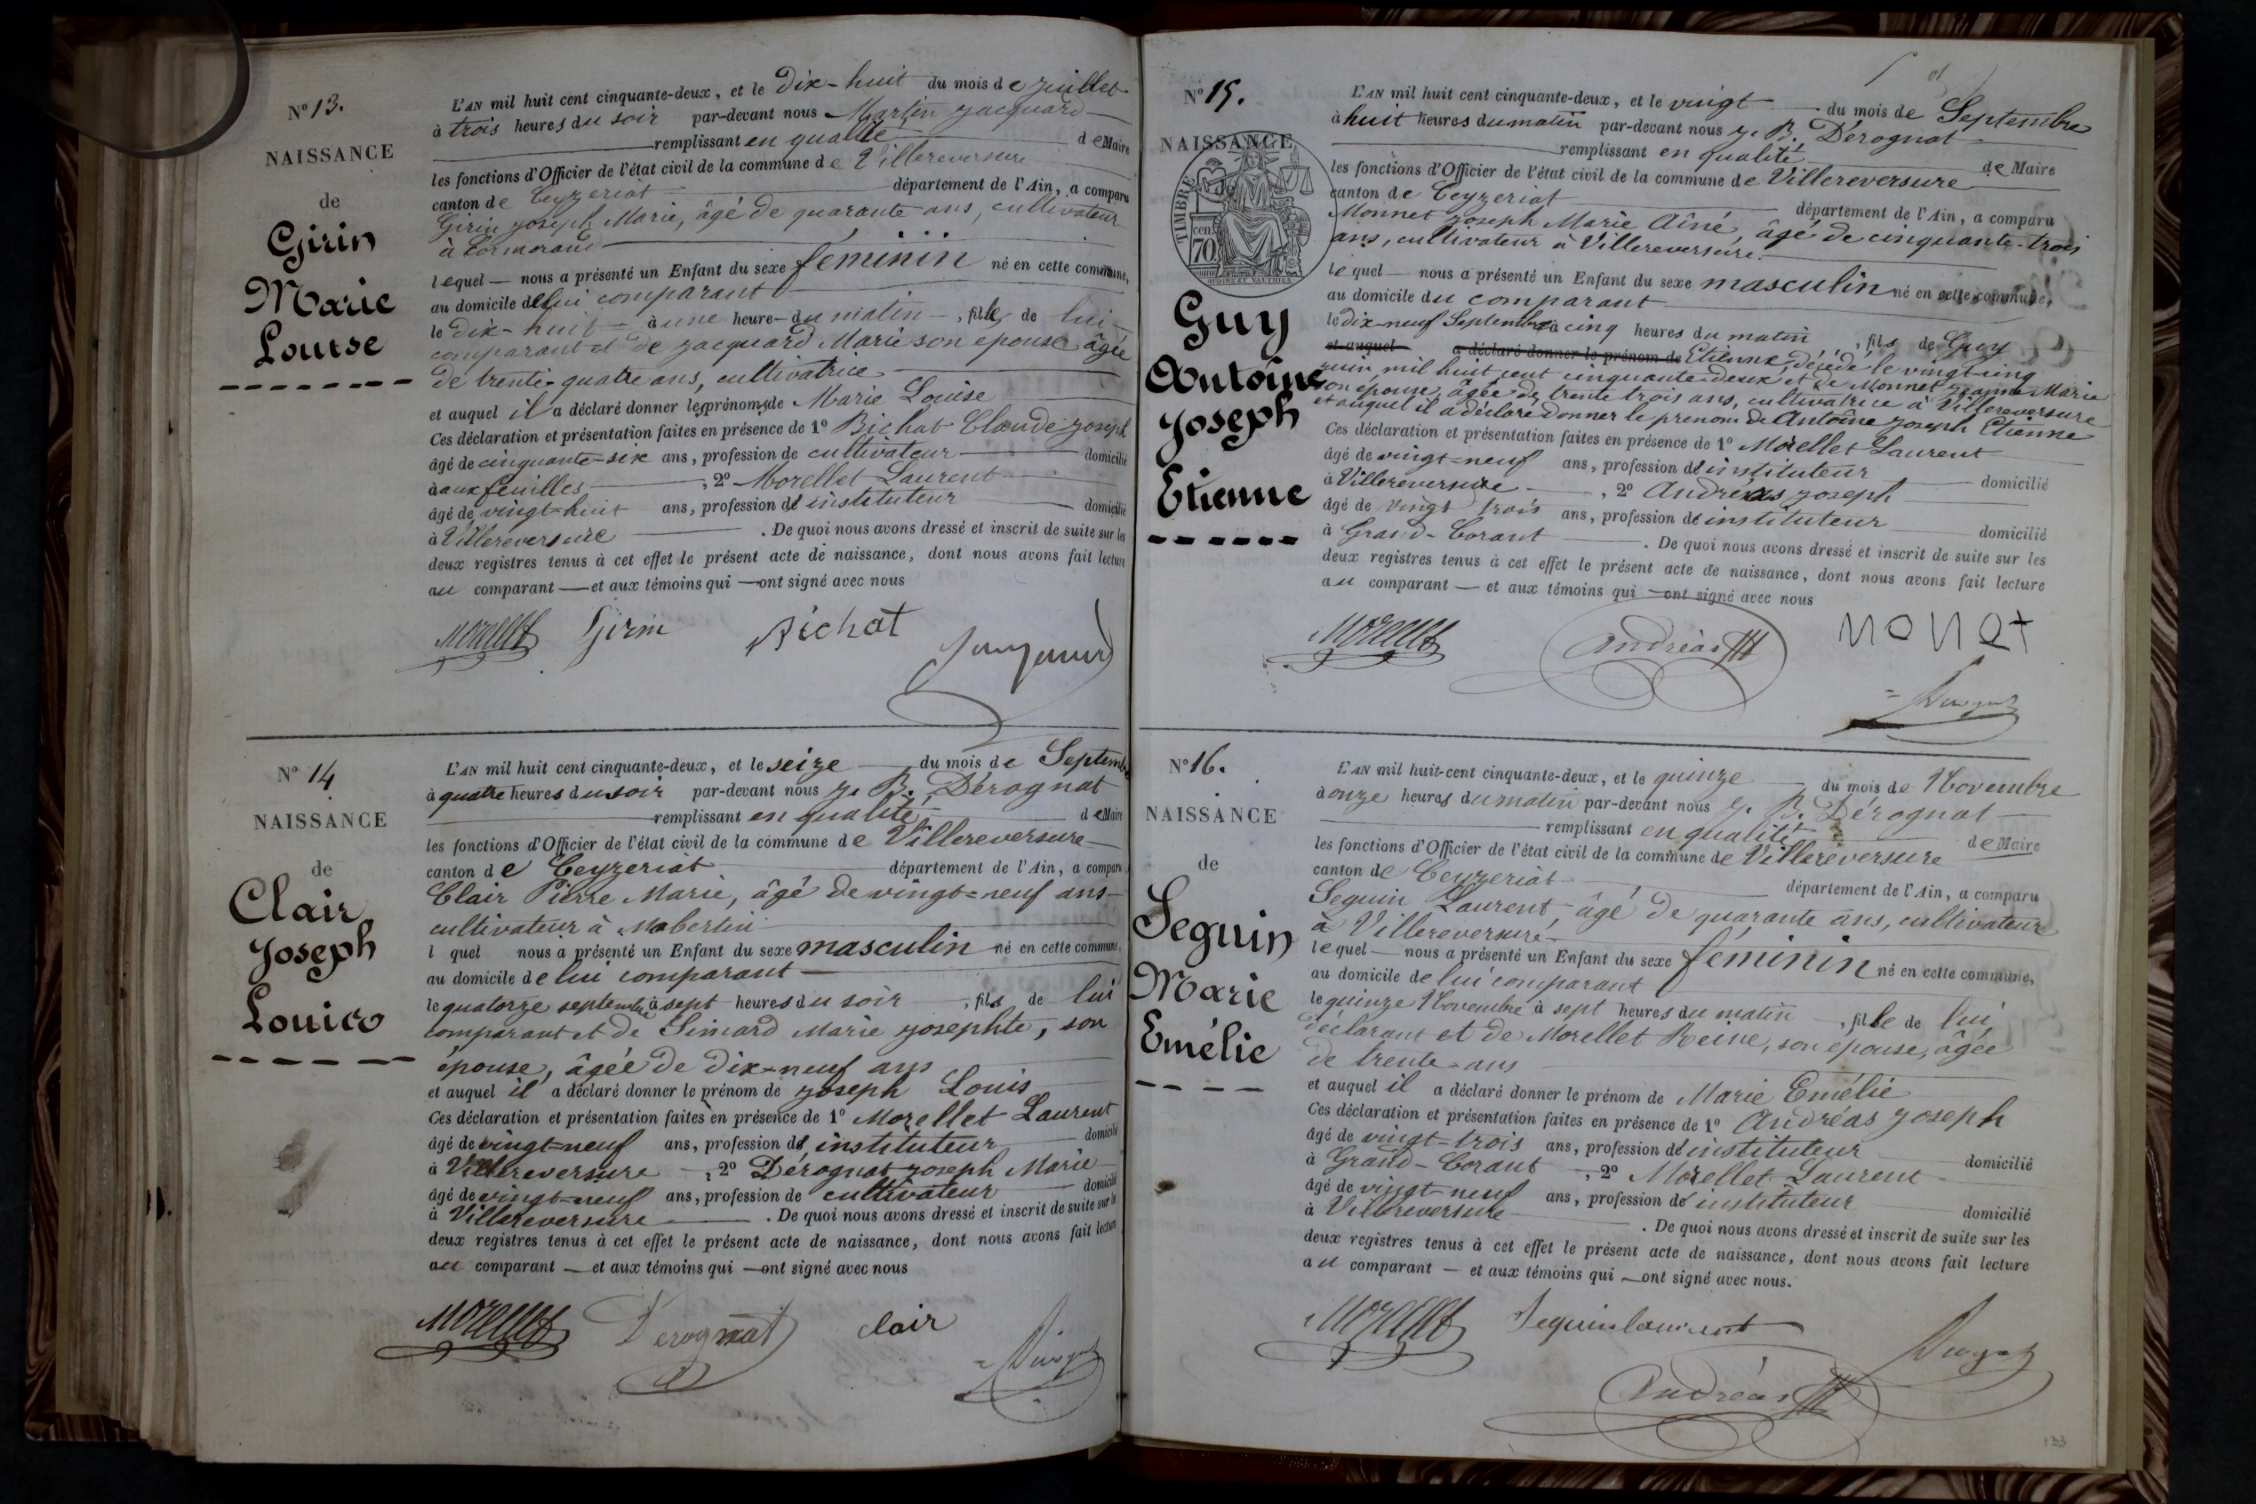 N° 13.
NAISSANCE
de
Girin
Marie
Louise
L'AN mil huit cent cinquante-deux, et le Dix-huit du mois de Juillet
à trois heures du soir par-devant nous Martin Jacquard
remplissant en qualité de Maire
les fonctions d'Officier de l'état civil de la commune de Villereversure
canton de Ceyzeriat département de l'Ain, a comparu
Girin Joseph Marie, âgé de quarante ans, cultivateur
à Cormorand
lequel nous a présenté un Enfant du sexe féminin né en cette commune,
au domicile de lui comparant
le dix-huit à une heure du matin, fille de lui
comparant et de Jacquard Marie son épouse âgée
de trente-quatre ans, cultivatrice
et auquel il a déclaré donner les prénoms de Marie Louise
Ces déclaration et présentation faites en présence de 1° Bichat Claude Joseph
âgé de cinquante-six ans, profession de cultivateur domicilié
à aux feuilles, 2° Morellet Laurent
âgé de vingt-huit ans, profession d'instituteur domicilié
à Villereversure. De quoi nous avons dressé et inscrit de suite sur les
deux registres tenus à cet effet le présent acte de naissance, dont nous avons fait lecture
au comparant et aux témoins qui ont signé avec nous
Morellet Girin Bichat Jacquard
N° 14
NAISSANCE
de
Clair
Joseph
Louis
L'AN mil huit cent cinquante-deux, et le seize du mois de Septembre
à quatre heures du soir par-devant nous J. B. Dérognat
remplissant en qualité de Maire
les fonctions d'Officier de l'état civil de la commune de Villereversure
canton de Ceyzeriat département de l'Ain, a comparu
Clair Pierre Marie, âgé de vingt-neuf ans
cultivateur à Mobertin
l quel nous a présenté un Enfant du sexe masculin né en cette commune,
au domicile de lui comparant
le quatorze septembre à sept heures du soir, fils de lui
comparant et de Simard Marie Josephte, son
épouse, âgée de dix-neuf ans
et auquel il a déclaré donner le prénom de Joseph Louis
Ces déclaration et présentation faites en présence de 1° Morellet Laurent
âgé de vingt-neuf ans, profession d'instituteur domicilié
à Villereversure, 2° Dérognat Joseph Marie
âgé de vingt-neuf ans, profession de cultivateur domicilié
à Villereversure. De quoi nous avons dressé et inscrit de suite sur les
deux registres tenus à cet effet le présent acte de naissance, dont nous avons fait lecture
au comparant et aux témoins qui ont signé avec nous
Morellet Derognat clair Dérognat
N° 15.
NAISSANCE
TIMBRE
cent
70
Guy
Antoine
Joseph
Etienne
L'AN mil huit cent cinquante-deux, et le vingt du mois de Septembre
à huit heures du matin par-devant nous J. B. Dérognat
remplissant en qualité de Maire
les fonctions d'Officier de l'état civil de la commune de Villereversure
canton de Ceyzeriat département de l'Ain, a comparu
Monnet Joseph Marie Aîné, âgé de cinquante-trois
ans, cultivateur à Villereversure.
lequel nous a présenté un Enfant du sexe masculin né en cette commune,
au domicile du comparant
le dix-neuf Septembre à cinq heures du matin, fils de Guy
et auquel a déclaré donner le prénom de Etienne, décédé le vingt-cinq
juin mil huit cent cinquante-deux et de Monnet Jeanne Marie
son épouse, âgée de trente trois ans, cultivatrice à Villereversure
et auquel il a déclaré donner le prénom de Antoine Joseph Etienne
Ces déclaration et présentation faites en présence de 1° Morellet Laurent
âgé de vingt-neuf ans, profession d'instituteur domicilié
à Villereversure, 2° Andréas Joseph
âgé de vingt trois ans, profession d'instituteur domicilié
à Grand-Corant. De quoi nous avons dressé et inscrit de suite sur les
deux registres tenus à cet effet le présent acte de naissance, dont nous avons fait lecture
au comparant et aux témoins qui ont signé avec nous
Morellet Andréas MONET
Dérognat
N° 16.
NAISSANCE
de
Seguin
Marie
Emélie
L'AN mil huit-cent cinquante-deux, et le quinze du mois de Novembre
à onze heures du matin par-devant nous J. B. Dérognat
remplissant en qualité de Maire
les fonctions d'Officier de l'état civil de la commune de Villereversure
canton de Ceyzeriat département de l'Ain, a comparu
Seguin Laurent, âgé de quarante ans, cultivateur
à Villereversure
lequel nous a présenté un Enfant du sexe féminin né en cette commune,
au domicile de lui comparant
le quinze Novembre à sept heures du matin, fille de lui
déclarant et de Morellet Reine, son épouse, âgée
de trente ans
et auquel il a déclaré donner le prénom de Marie Emélie
Ces déclaration et présentation faites en présence de 1° Andréas Joseph
âgé de vingt-trois ans, profession d'instituteur domicilié
à Grand-Corant, 2° Morellet Laurent
âgé de vingt-neuf ans, profession d'instituteur domicilié
à Villereversure. De quoi nous avons dressé et inscrit de suite sur les
deux registres tenus à cet effet le présent acte de naissance, dont nous avons fait lecture
au comparant et aux témoins qui ont signé avec nous.
Morellet Seguin laurent Dérognat
Andréas
133